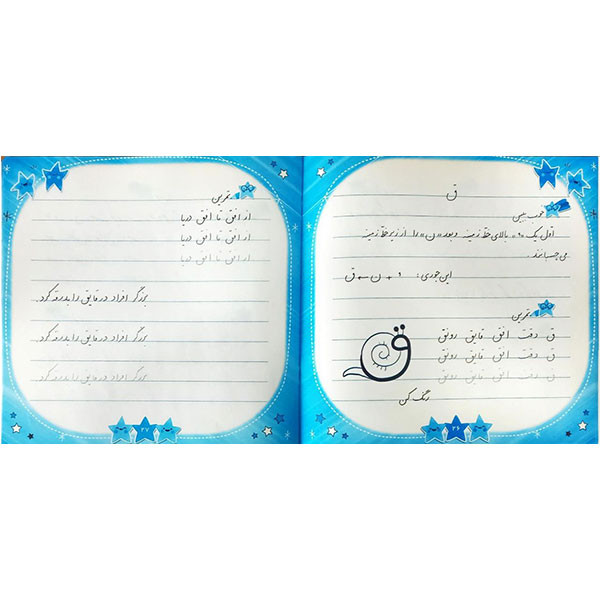 ق
خوب ببین
اول یک «ﻗ» بالای خط زمینه و بعد «ن» را از زیر خط زمینه
می‌چسبانند.
این جوری: ﻗ + ن ← ق
تمرین
ق دقت افق قایق رونق
ق دقت افق قایق رونق
ق دقت افق قایق رونق
رنگ کن
۲۶
تمرین
از افق تا افق دریا
از افق تا افق دریا
از افق تا افق دریا
برزگر افراد در قایق را بدرقه کرد.
برزگر افراد در قایق را بدرقه کرد.
برزگر افراد در قایق را بدرقه کرد.
۲۷